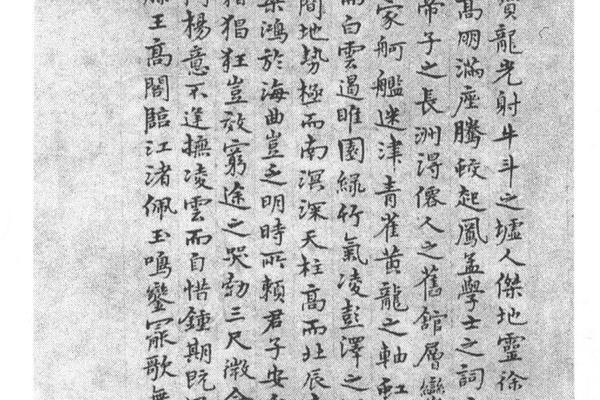 寳龍光射牛斗之墟人傑地靈徐
高朋滿座騰蛟起鳳孟學士之詞
帝子之長洲得僊人之舊館層巒
家舸艦迷津青雀黄龍之軸虹
而白雲遏睢園緑竹氣凌彭澤之
間地勢極而南溟深天柱高而北辰
梁鴻於海曲豈乏明時所賴君子安
猖狂豈效窮途之哭勃三尺微命
楊意不逢撫凌雲而自惜鍾期既
王高閣臨江渚佩玉鳴鑾罷歌舞